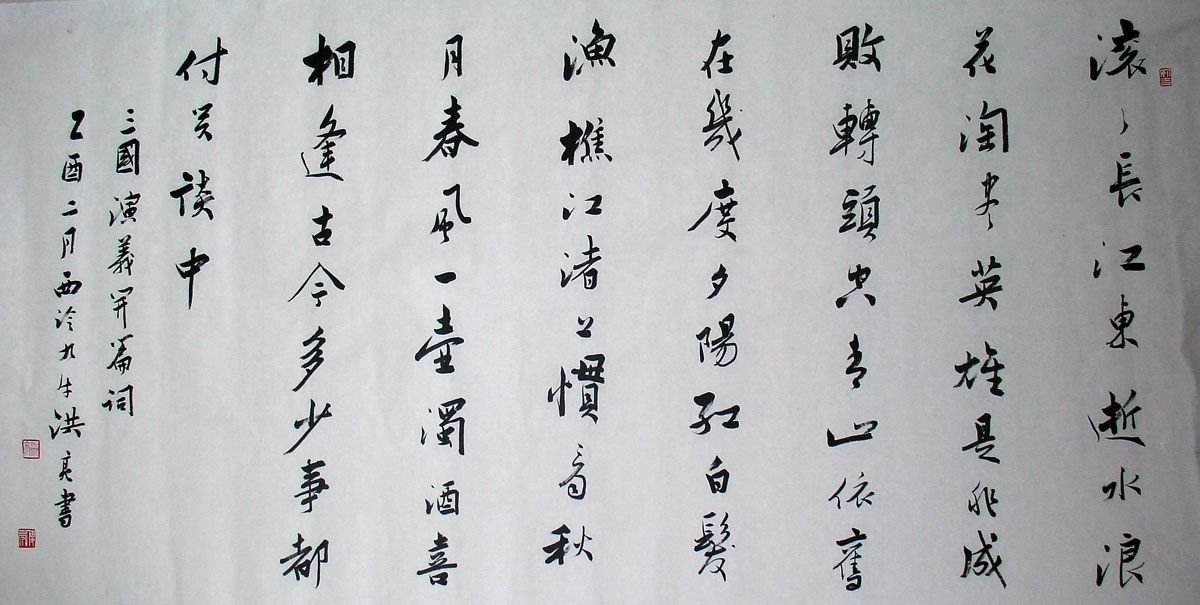 滚々長江東逝水浪
花淘尽英雄是非成
敗轉頭空青山依舊
在幾度夕陽紅白髮
漁樵江渚上慣看秋
月春風一壺濁酒喜
相逢古今多少事都
付笑談中
三國演義开篇词
乙酉二月西泠九牛洪亮書